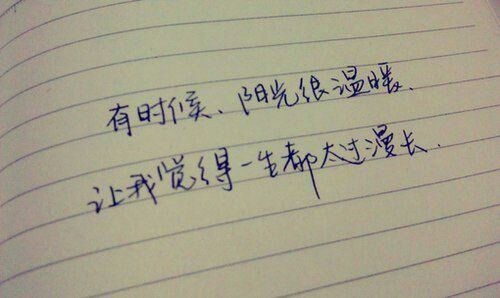 有时候、阳光很温暖、
让我觉得一生都太过漫长.